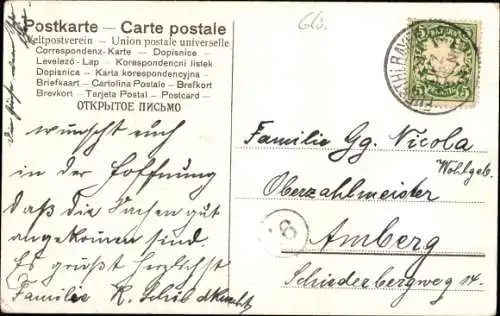 Gls.
Postkarte — Carte postale
Weltpostverein - Union postale universelle
Correspondenz-Karte - Dopisnice -
Levelező-Lap - Korespondencni listek
Dopisnica - Karta korespondencyjna -
Briefkaart - Cartolina Postale - Brefkort
Brevkort - Tarjeta Postal - Postcard -
ОТКРЫТОЕ ПИСЬМО
wünscht euch
in der Hoffnung
daß die Sachen gut
angekommen sind.
Es grüßt herzlichst
Familie K. Schildknecht
FÜRTH
5 5
Familie Gg. Nicola
Wohlgeb.
Oberzahlmeister
6
Amberg
Schiederbergweg 14.